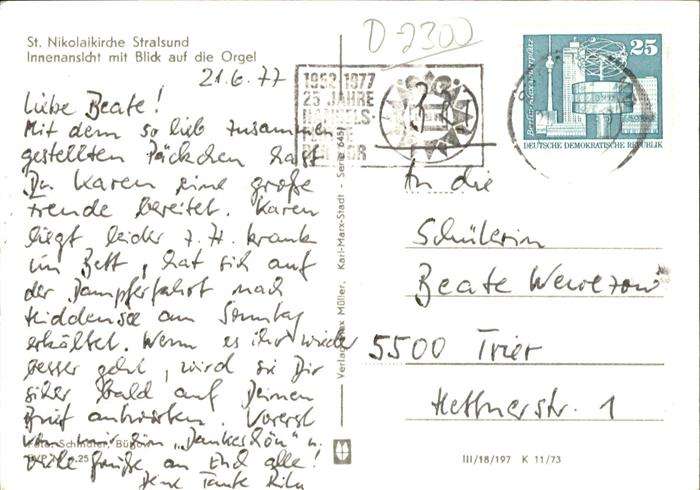 St. Nikolaikirche Stralsund
Innenansicht mit Blick auf die Orgel
21.6.77
Liebe Beate!
Mit dem so lieb zusammen
gestellten Päckchen hast
Du Karen eine große
Freude bereitet. Karen
liegt leider z. Zt. krank
im Bett, hat sich auf
der Dampferfahrt nach
Hiddensee am Sonntag
erkältet. Wenn es ihr wieder
besser geht, wird sie Dir
sicher bald auf Deinen
Brief antworten. Vorerst
von mir ein „Dankeschön" u.
viele Grüße an Euch alle!
Deine Tante
Foto: Schindler,
D-2300
1952-1977
25 JAHRE
25
Berlin-Alexanderplatz
DEUTSCHE DEMOKRATISCHE REPUBLIK
An die
Schülerin
Beate
5500 Trier
Hettnerstr. 1
Verlag Max Müller, Karl-Marx-Stadt - Serie 645
III/18/197 K 11/73